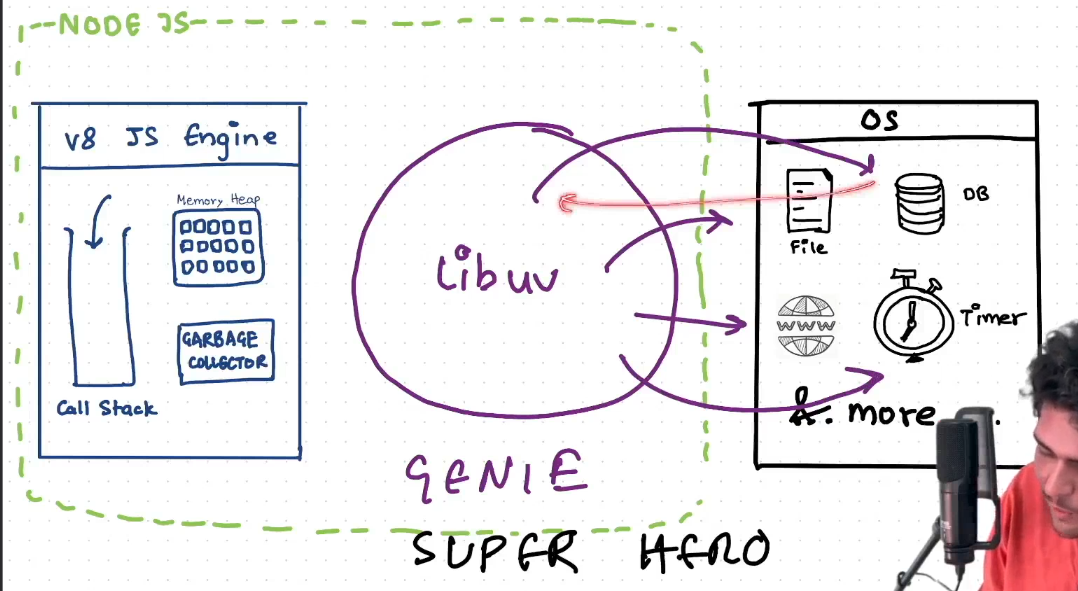 NODE JS
V8 JS Engine
Memory Heap
GARBAGE
COLLECTOR
Call Stack
Libuv
GENIE
SUPER HERO
OS
File
DB
WWW
Timer
&. more